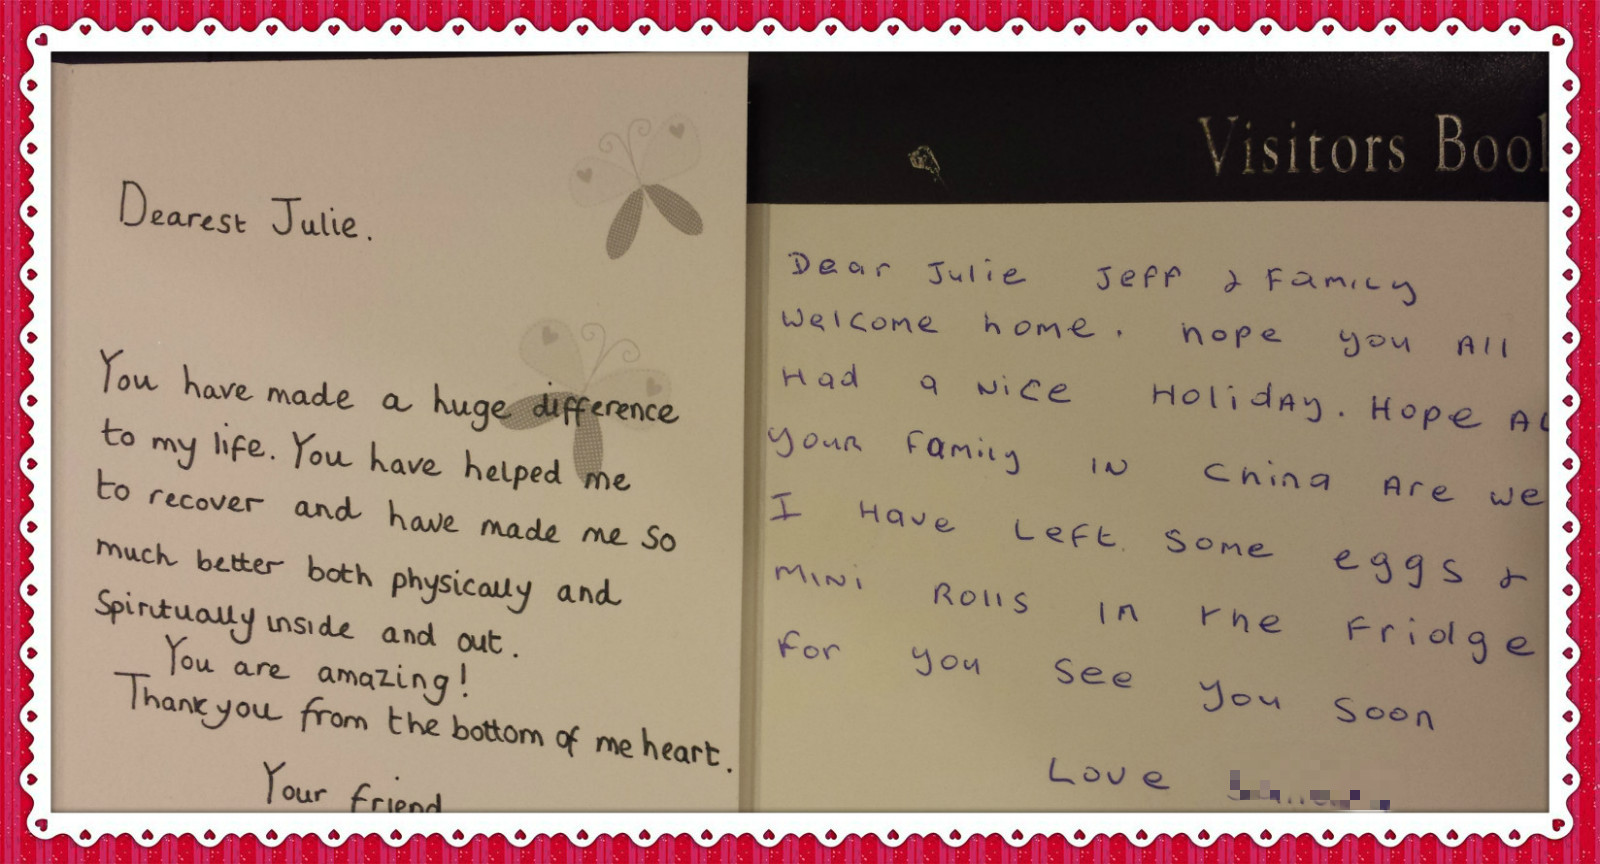 Dearest Julie.
You have made a huge difference
to my life. You have helped me
to recover and have made me so
much better both physically and
Spiritually inside and out.
You are amazing!
Thank you from the bottom of me heart.
Your friend
Visitors Boo
Dear Julie Jeff & Family
Welcome home. hope you All
Had a Nice Holiday. Hope
your Family in China Are we
I Have Left Some eggs &
mini Rolls in the Fridge
for you see you soon
Love